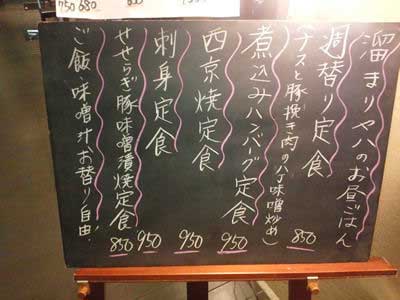 溜まりや八のお昼ごはん
週替り定食
(ナスと豚挽き肉の八丁味噌炒め) 850
煮込みハンバーグ定食 950
西京焼定食 950
刺身定食 950
せせらぎ豚味噌漬焼定食 850
ご飯・味噌汁お替り自由!
750 680